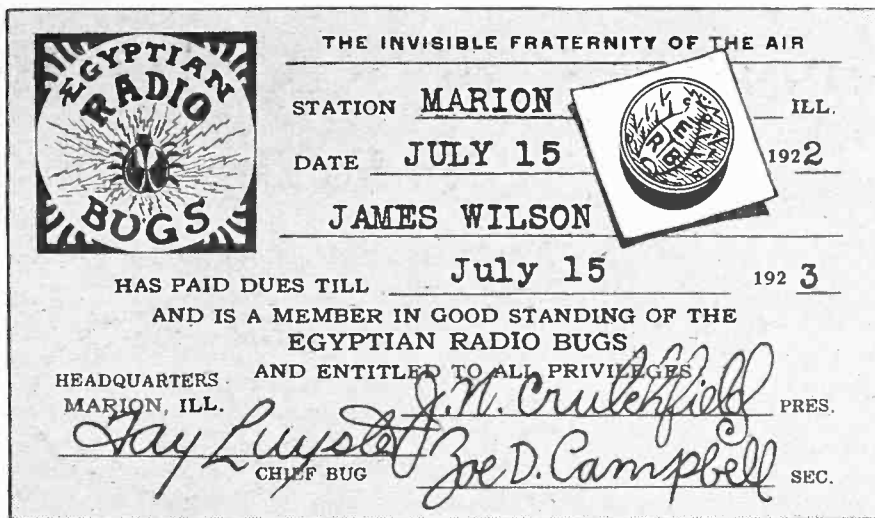 EGYPTIAN
RADIO
BUGS
THE INVISIBLE FRATERNITY OF THE AIR
STATION MARION ILL.
DATE JULY 15 1922
JAMES WILSON
HAS PAID DUES TILL July 15 192 3
AND IS A MEMBER IN GOOD STANDING OF THE
EGYPTIAN RADIO BUGS
AND ENTITLED TO ALL PRIVILEGES
HEADQUARTERS
MARION, ILL.
J. N. Crutchfield PRES.
Fay Luyster
CHIEF BUG
Zoe D. Campbell SEC.
E R B